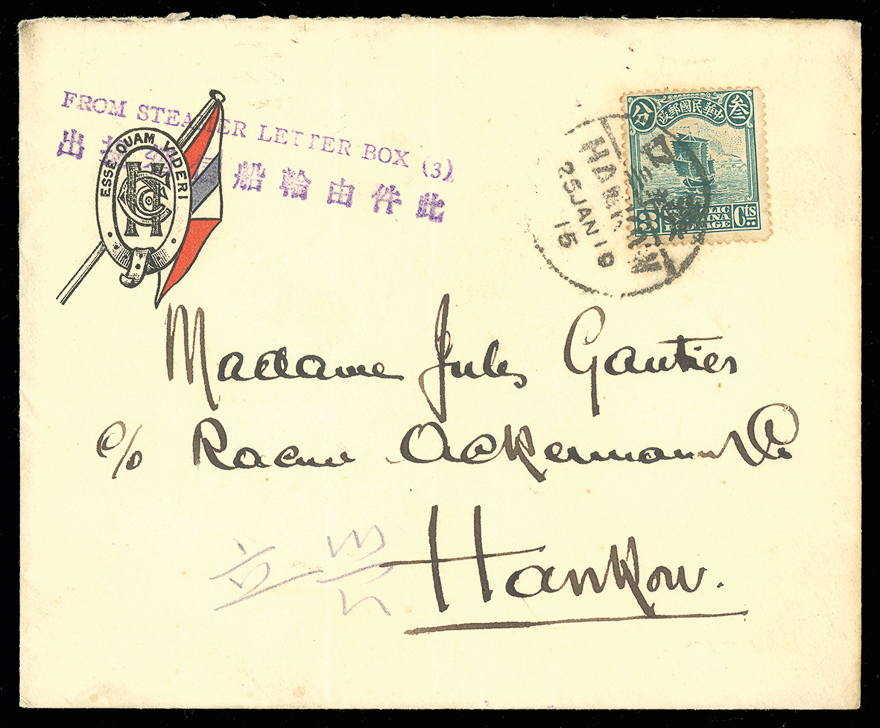 FROM STEAMER LETTER BOX (3)
出 船輪由件此
ESSE QUAM VIDERI
分 政郵國民華中 叁
3 REPUBLIC OF CHINA POSTAGE Cts
HANKOW
25 JAN 19
15
Madame Jules Gautier
c/o Racine Ackermann & Co
立興 Hankow.